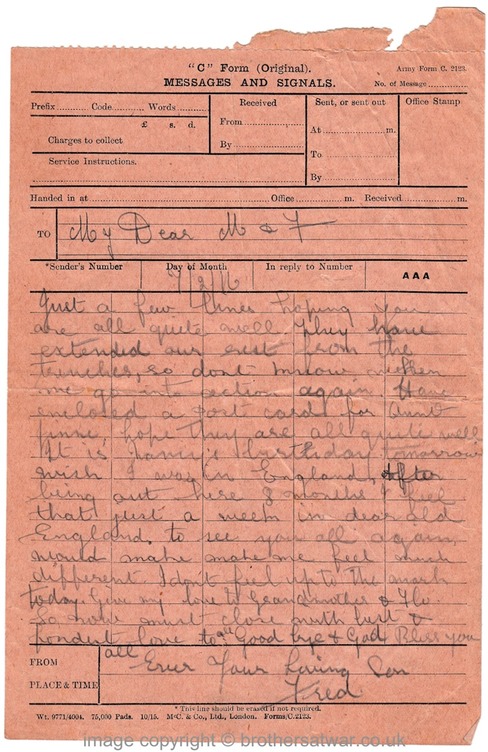 "C" Form (Original).
Army Form C. 2123.
MESSAGES AND SIGNALS.
No. of Message
Prefix Code Words
Received
Sent, or sent out
Office Stamp
£ s. d.
From
At m.
Charges to collect
By
To
Service Instructions.
By
Handed in at Office m. Received m.
TO My Dear M & F
*Sender's Number
Day of Month
In reply to Number
AAA
7/2/16
Just a few lines hoping you
are all quite well They have
extended our rest from the
trenches, so dont know when
we go into action again Have
enclosed a post card for Aunt
hope they are all quite well
It is birthday tomorrow
wish I was in England, After
being out here 8 months I feel
that just a week in dear old
England, to see you all again
would make make me feel much
different I dont feel up to the mark
today Give my love to Grandmother & Flo
So now must close with best &
fondest love to all Good bye & God Bless you
all
FROM Ever Your Loving Son
PLACE & TIME Fred
* This line should be erased if not required.
Wt. 9771/4004. 75,000 Pads. 10/15. McC. & Co., Ltd., London. Forms/C.2123.
image copyright © brothersatwar.co.uk